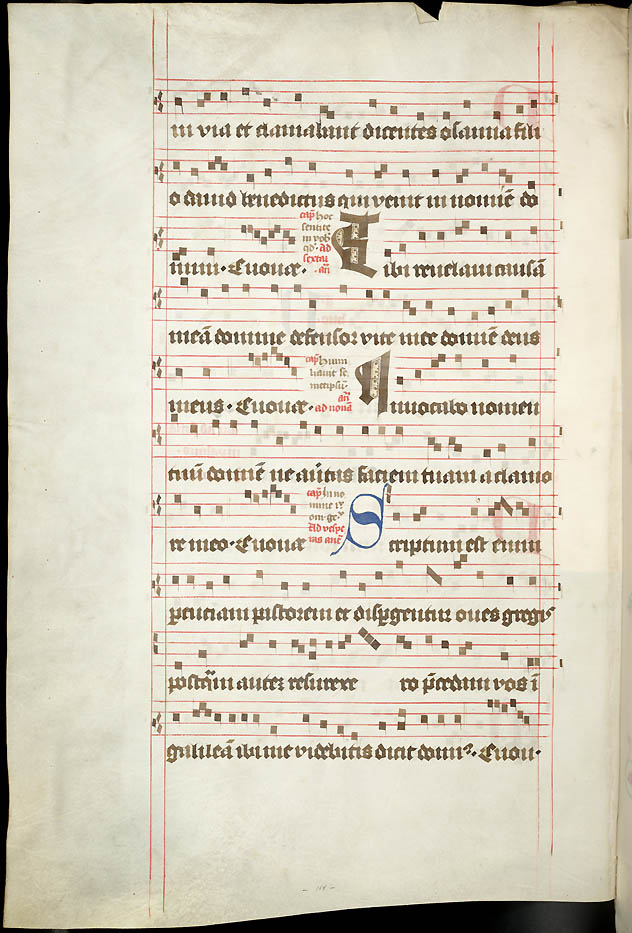 in via et clamabant dicentes osanna fili
o david benedictus qui venit in nomīe do
mini · Euouae · cap̄ hoc
sentite
in vob
qd · ad
sextā
an̄
Tibi revelavi causā
meā domine defensor vite mee domīe deus
meus · Euouae · cap̄ hum
iliavit se
metipsū ·
an̄
ad nonā
Invocabo nomen
tuū domīe ne av̄tas faciem tuam a clamo
re meo · Euouae cap̄ In no
mine
Ad vespe
ras
Scriptum est enim
percutiam pastorem et dispgentur oves gregis
postq̄m autez resurrexe ro p̄cedam vos ī
galileā ibi me videbitis dicit domin9 · Euou ·